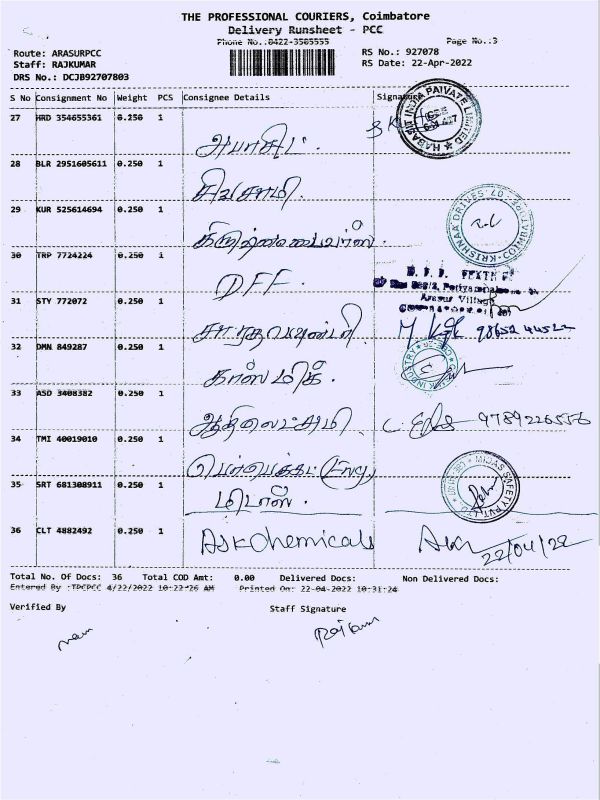 THE PROFESSIONAL COURIERS, Coimbatore
Delivery Runsheet - PCC
Phone No.:0422-3505555
Page No.:3
Route: ARASURPCC
RS No.: 927078
Staff: RAJKUMAR
RS Date: 22-Apr-2022
DRS No.: DCJB92707803
S No Consignment No Weight PCS Consignee Details Signature
27 HRD 354655361 0.250 1
அபாசிட்.
28 BLR 2951605611 0.250 1
சிவசாமி.
29 KUR 525614694 0.250 1
30 TRP 7724224 0.250 1
DFF.
31 STY 772072 0.250 1
Arasur Village
98652 44522
32 DMN 849287 0.250 1
காஸ்மிக்.
33 ASD 3408382 0.250 1
ஆதிலட்சுமி.
9789226556
34 TMI 40019010 0.250 1
35 SRT 681308911 0.250 1
மிடாஸ்.
36 CLT 4882492 0.250 1
Ask Chemicals
22/04/22
HABASIT INDIA PRIVATE LIMITED
KRISHNAA DRIVES
MIDAS SAFETY PVT LTD
Total No. Of Docs: 36 Total COD Amt: 0.00 Delivered Docs: Non Delivered Docs:
Entered By :TPCPCC 4/22/2022 10:22:26 AM Printed On: 22-04-2022 10:31:24
Verified By
Staff Signature